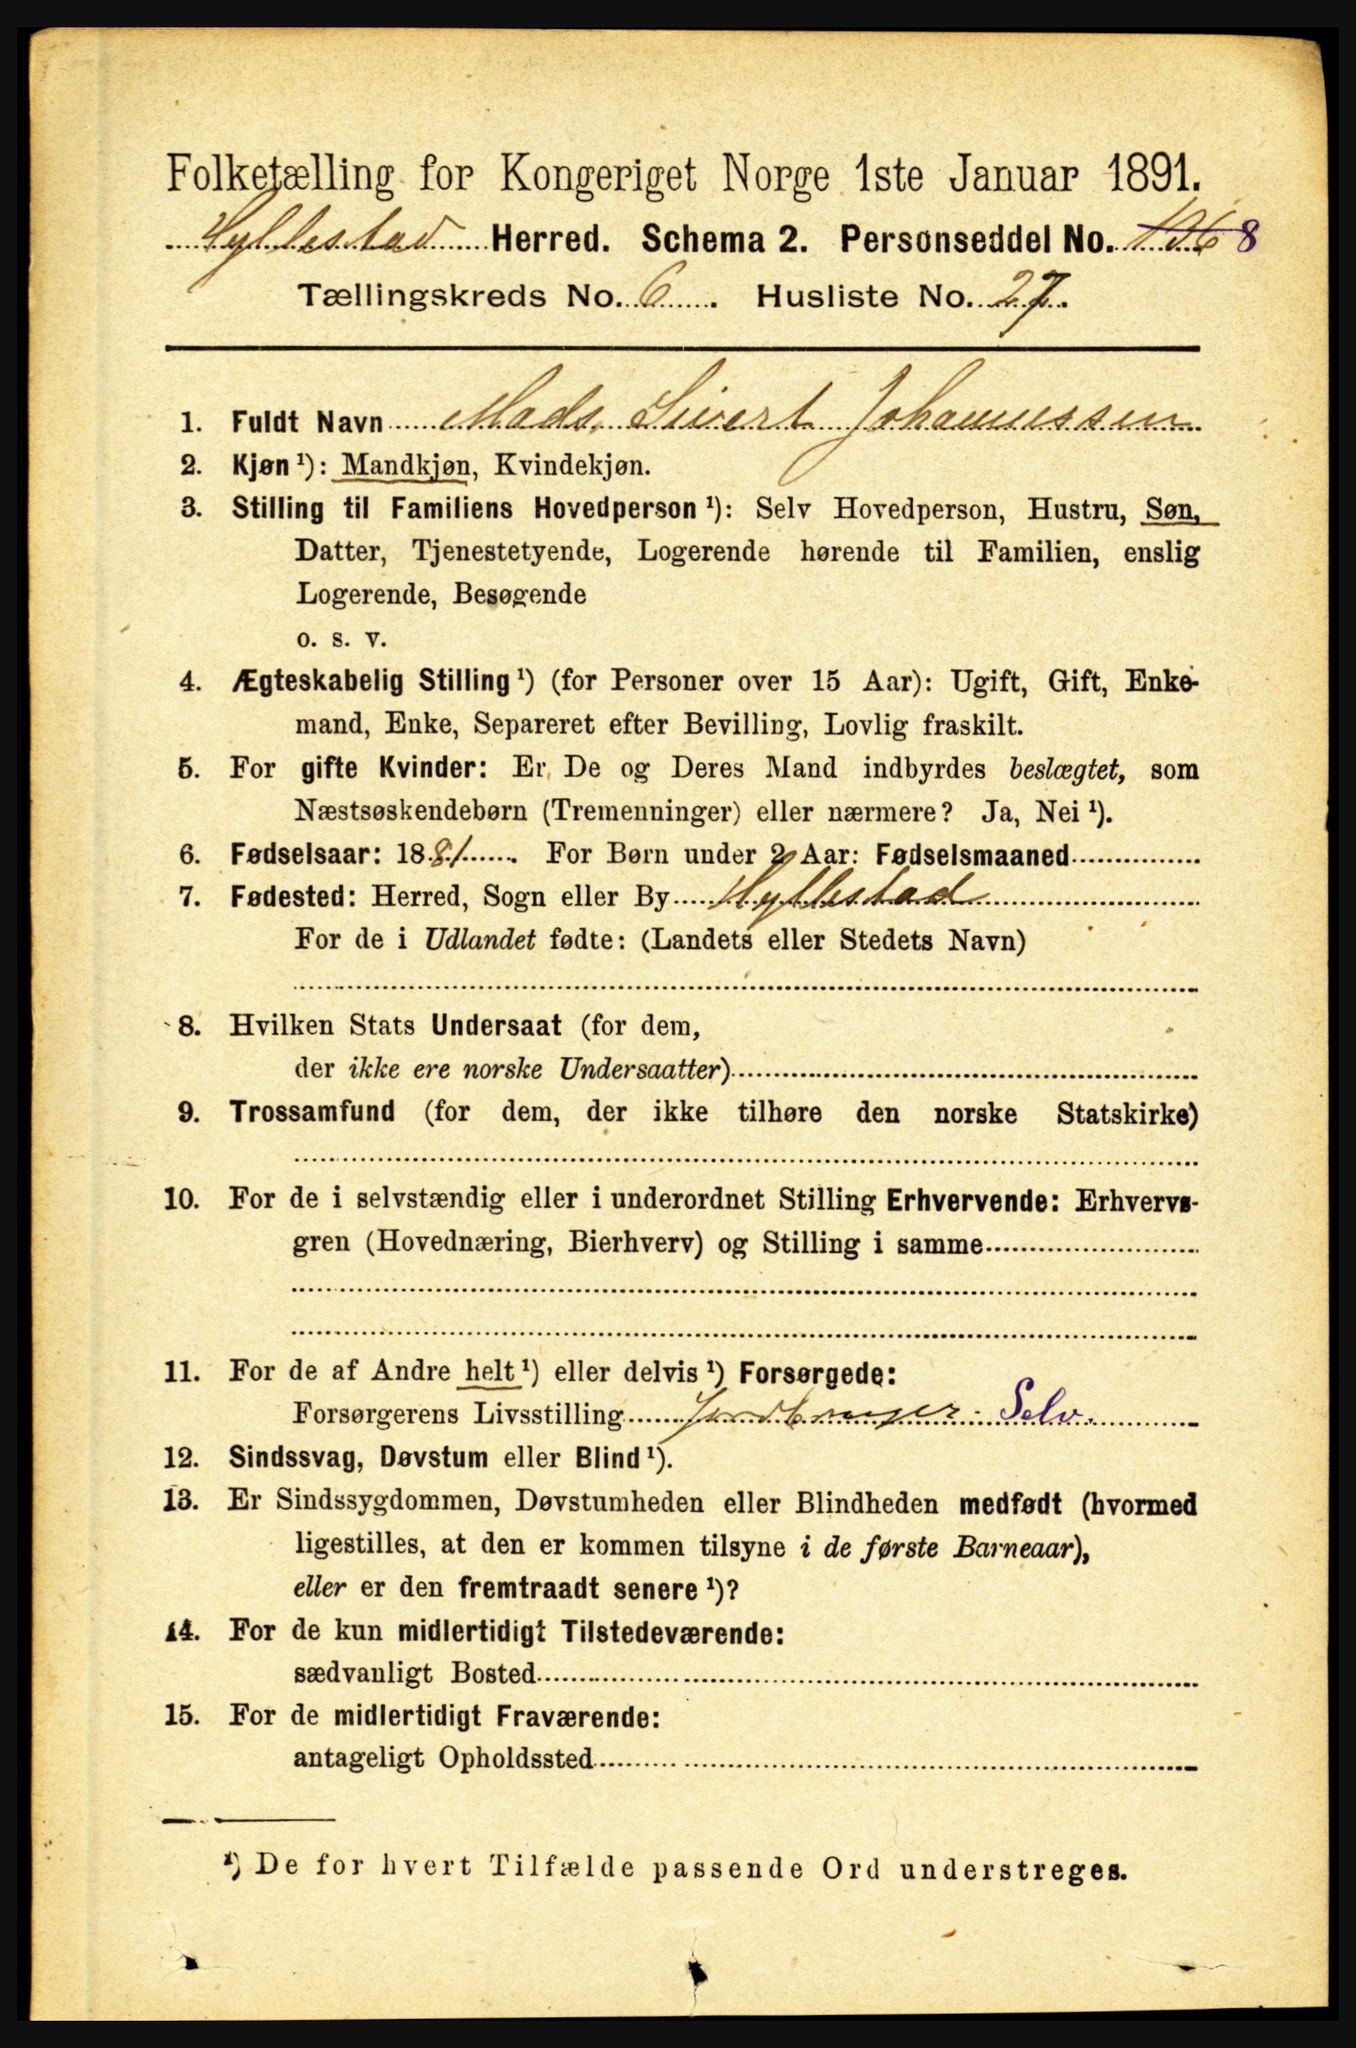 Folketælling for Kongeriget Norge 1ste Januar 1891.
Hyllestad Herred. Schema 2. Personseddel No. 196 8
Tællingskreds No. 6. Husliste No. 27.
1. Fuldt Navn Mads Sivert Johannessen
2. Kjøn ¹): Mandkjøn, Kvindekjøn.
3. Stilling til Familiens Hovedperson ¹): Selv Hovedperson, Hustru, Søn,
Datter, Tjenestetyende, Logerende hørende til Familien, enslig
Logerende, Besøgende
o. s. v.
4. Ægteskabelig Stilling ¹) (for Personer over 15 Aar): Ugift, Gift, Enke-
mand, Enke, Separeret efter Bevilling, Lovlig fraskilt.
5. For gifte Kvinder: Er De og Deres Mand indbyrdes beslægtet, som
Næstsøskendebørn (Tremenninger) eller nærmere? Ja, Nei ¹).
6. Fødselsaar: 1881. For Børn under 2 Aar: Fødselsmaaned
7. Fødested: Herred, Sogn eller By Hyllestad
For de i Udlandet fødte: (Landets eller Stedets Navn)
8. Hvilken Stats Undersaat (for dem,
der ikke ere norske Undersaatter)
9. Trossamfund (for dem, der ikke tilhøre den norske Statskirke)
10. For de i selvstændig eller i underordnet Stilling Erhvervende: Erhvervs-
gren (Hovednæring, Bierhverv) og Stilling i samme
11. For de af Andre helt ¹) eller delvis ¹) Forsørgede:
Forsørgerens Livsstilling Jordbruger. Selv.
12. Sindssvag, Døvstum eller Blind ¹).
13. Er Sindssygdommen, Døvstumheden eller Blindheden medfødt (hvormed
ligestilles, at den er kommen tilsyne i de første Barneaar),
eller er den fremtraadt senere ¹)?
14. For de kun midlertidigt Tilstedeværende:
sædvanligt Bosted
15. For de midlertidigt Fraværende:
antageligt Opholdssted
¹) De for hvert Tilfælde passende Ord understreges.